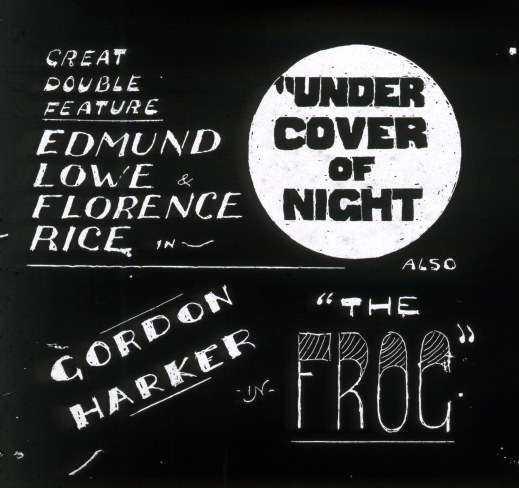 GREAT
DOUBLE
FEATURE
EDMUND
LOWE &
FLORENCE
RICE IN
"UNDER
COVER
OF
NIGHT
ALSO
GORDON
HARKER
-IN-
"THE
FROG"